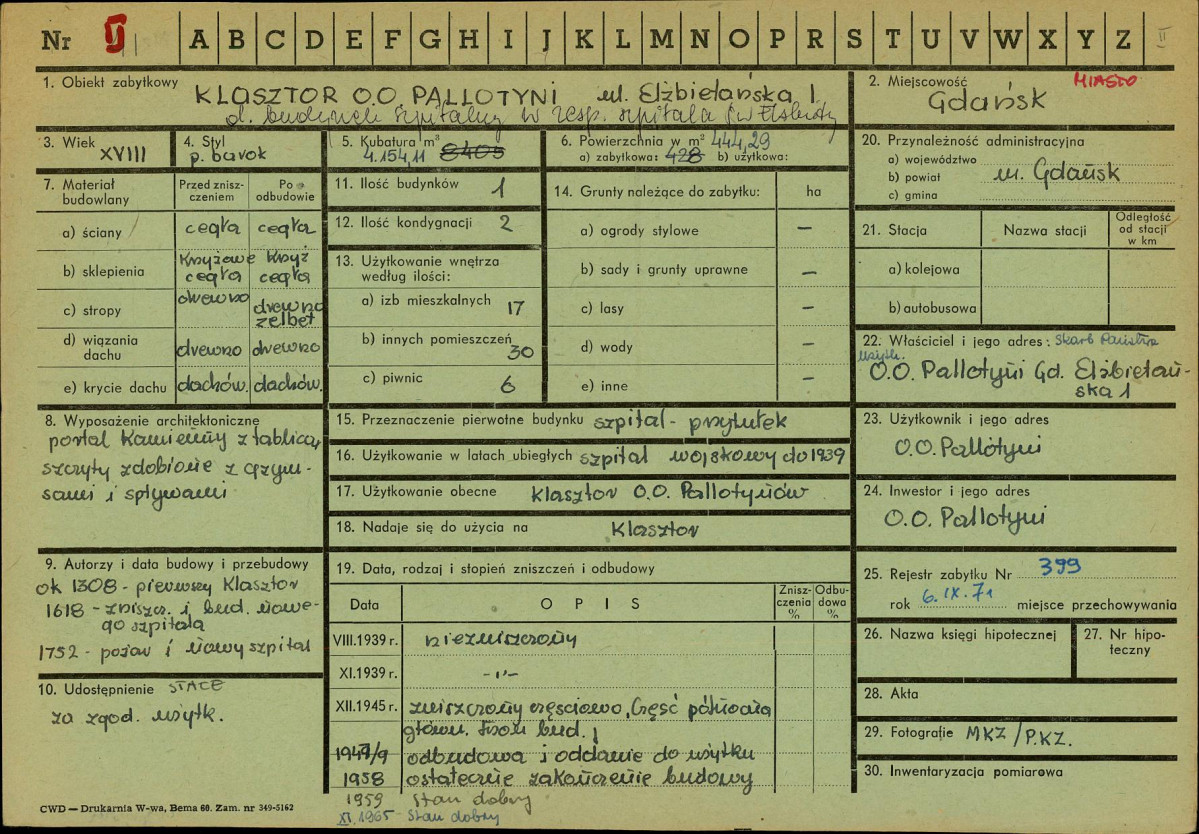 Nr A B C D E F G H I J K L M N O P R S T U V W X Y Z II
1. Obiekt zabytkowy
KLASZTOR O.O PALLOTYNI ul. Elżbietańska 1
d. budynek szpitalny w zesp. szpitala św Elżbiety
2. Miejscowość MIASTO
Gdańsk
3. Wiek XVIII
4. Styl
p. barok
5. Kubatura m³
4.154,11 8405
6. Powierzchnia w m² 444,29
a) zabytkowa: 428 b) użytkowa:
20. Przynależność administracyjna
a) województwo
b) powiat m. Gdańsk
c) gmina
7. Materiał budowlany
Przed znisz-
czeniem
Po
odbudowie
a) ściany cegła cegła
b) sklepienia krzyżowe cegła krzyż cegła
c) stropy drewno drewno żelbet
d) wiązania dachu drewno drewno
e) krycie dachu dachów. dachów.
11. Ilość budynków 1
12. Ilość kondygnacji 2
13. Użytkowanie wnętrza
według ilości:
a) izb mieszkalnych 17
b) innych pomieszczeń 30
c) piwnic 6
14. Grunty należące do zabytku: ha
a) ogrody stylowe –
b) sady i grunty uprawne –
c) lasy –
d) wody –
e) inne –
21. Stacja Nazwa stacji Odległość od stacji w km
a) kolejowa
b) autobusowa
22. Właściciel i jego adres: Skarb Państwa
użytk.
O.O. Pallotyni Gd. Elżbietań-
ska 1
8. Wyposażenie architektoniczne
portal kamienny z tablicą,
szczyty zdobione z gzym-
sami i spływami
15. Przeznaczenie pierwotne budynku szpital - przytułek
16. Użytkowanie w latach ubiegłych szpital wojskowy do 1939
17. Użytkowanie obecne klasztor O.O. Pallotynów
18. Nadaje się do użycia na klasztor
23. Użytkownik i jego adres
O.O. Pallotyni
24. Inwestor i jego adres
O.O. Pallotyni
9. Autorzy i data budowy i przebudowy
ok 1308 - pierwszy klasztor
1618 - zniszcz. i bud. nowe-
go szpitala
1752 - pożar i nowy szpital
10. Udostępnienie STAŁE
za zgod. użytk.
19. Data, rodzaj i stopień zniszczeń i odbudowy
Data OPIS Znisz-
czenia
% Odbu-
dowa
%
VIII.1939 r. niezniszczony
XI.1939 r. -"-
XII.1945 r. zniszczony częściowo, część północna
główn. bud.
1947/9 odbudowa i oddanie do użytku
1958 ostateczne zakończenie budowy
1959 stan dobry
XI.1965 - Stan dobry
25. Rejestr zabytku Nr 399
rok 6.IX.71 miejsce przechowywania
26. Nazwa księgi hipotecznej
27. Nr hipo-
teczny
28. Akta
29. Fotografie MKZ/P.KZ.
30. Inwentaryzacja pomiarowa
CWD — Drukarnia W-wa, Bema 60. Zam. nr 349-5162